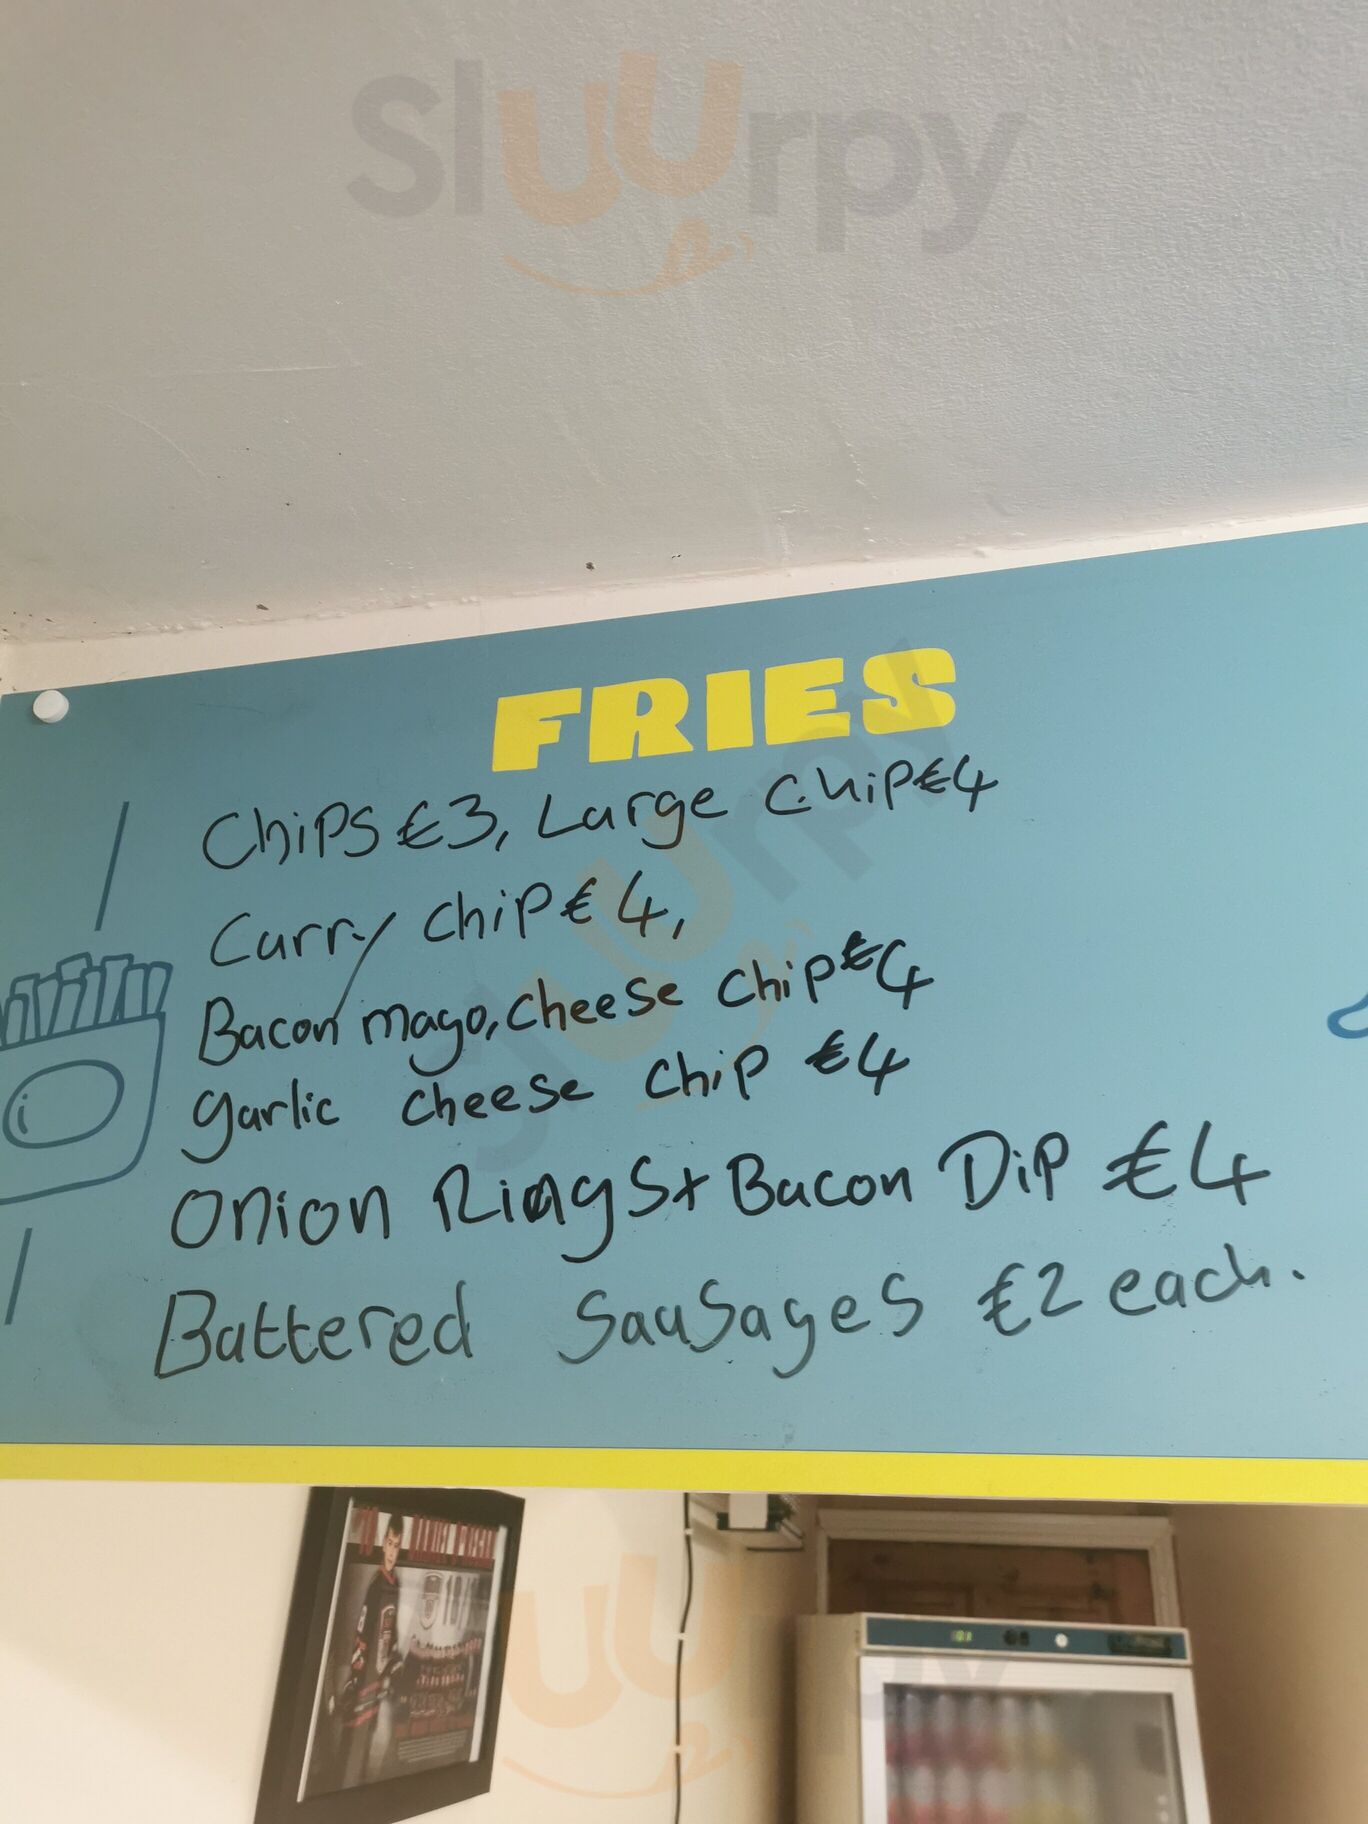 Sluurpy
FRIES
Chips €3, Large Chip €4
Curry Chip €4,
Bacon mayo, cheese chip €4
garlic cheese chip €4
Onion Rings + Bacon Dip €4
Battered Sausages €2 each.